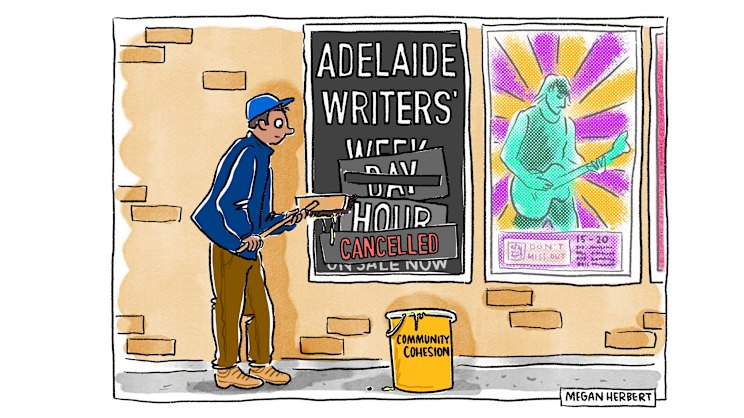 ADELAIDE
WRITERS'
WEEK
DAY
HOUR
CANCELLED
ON SALE NOW
15-20
DON'T
MISS OUT
COMMUNITY
COHESION
MEGAN HERBERT